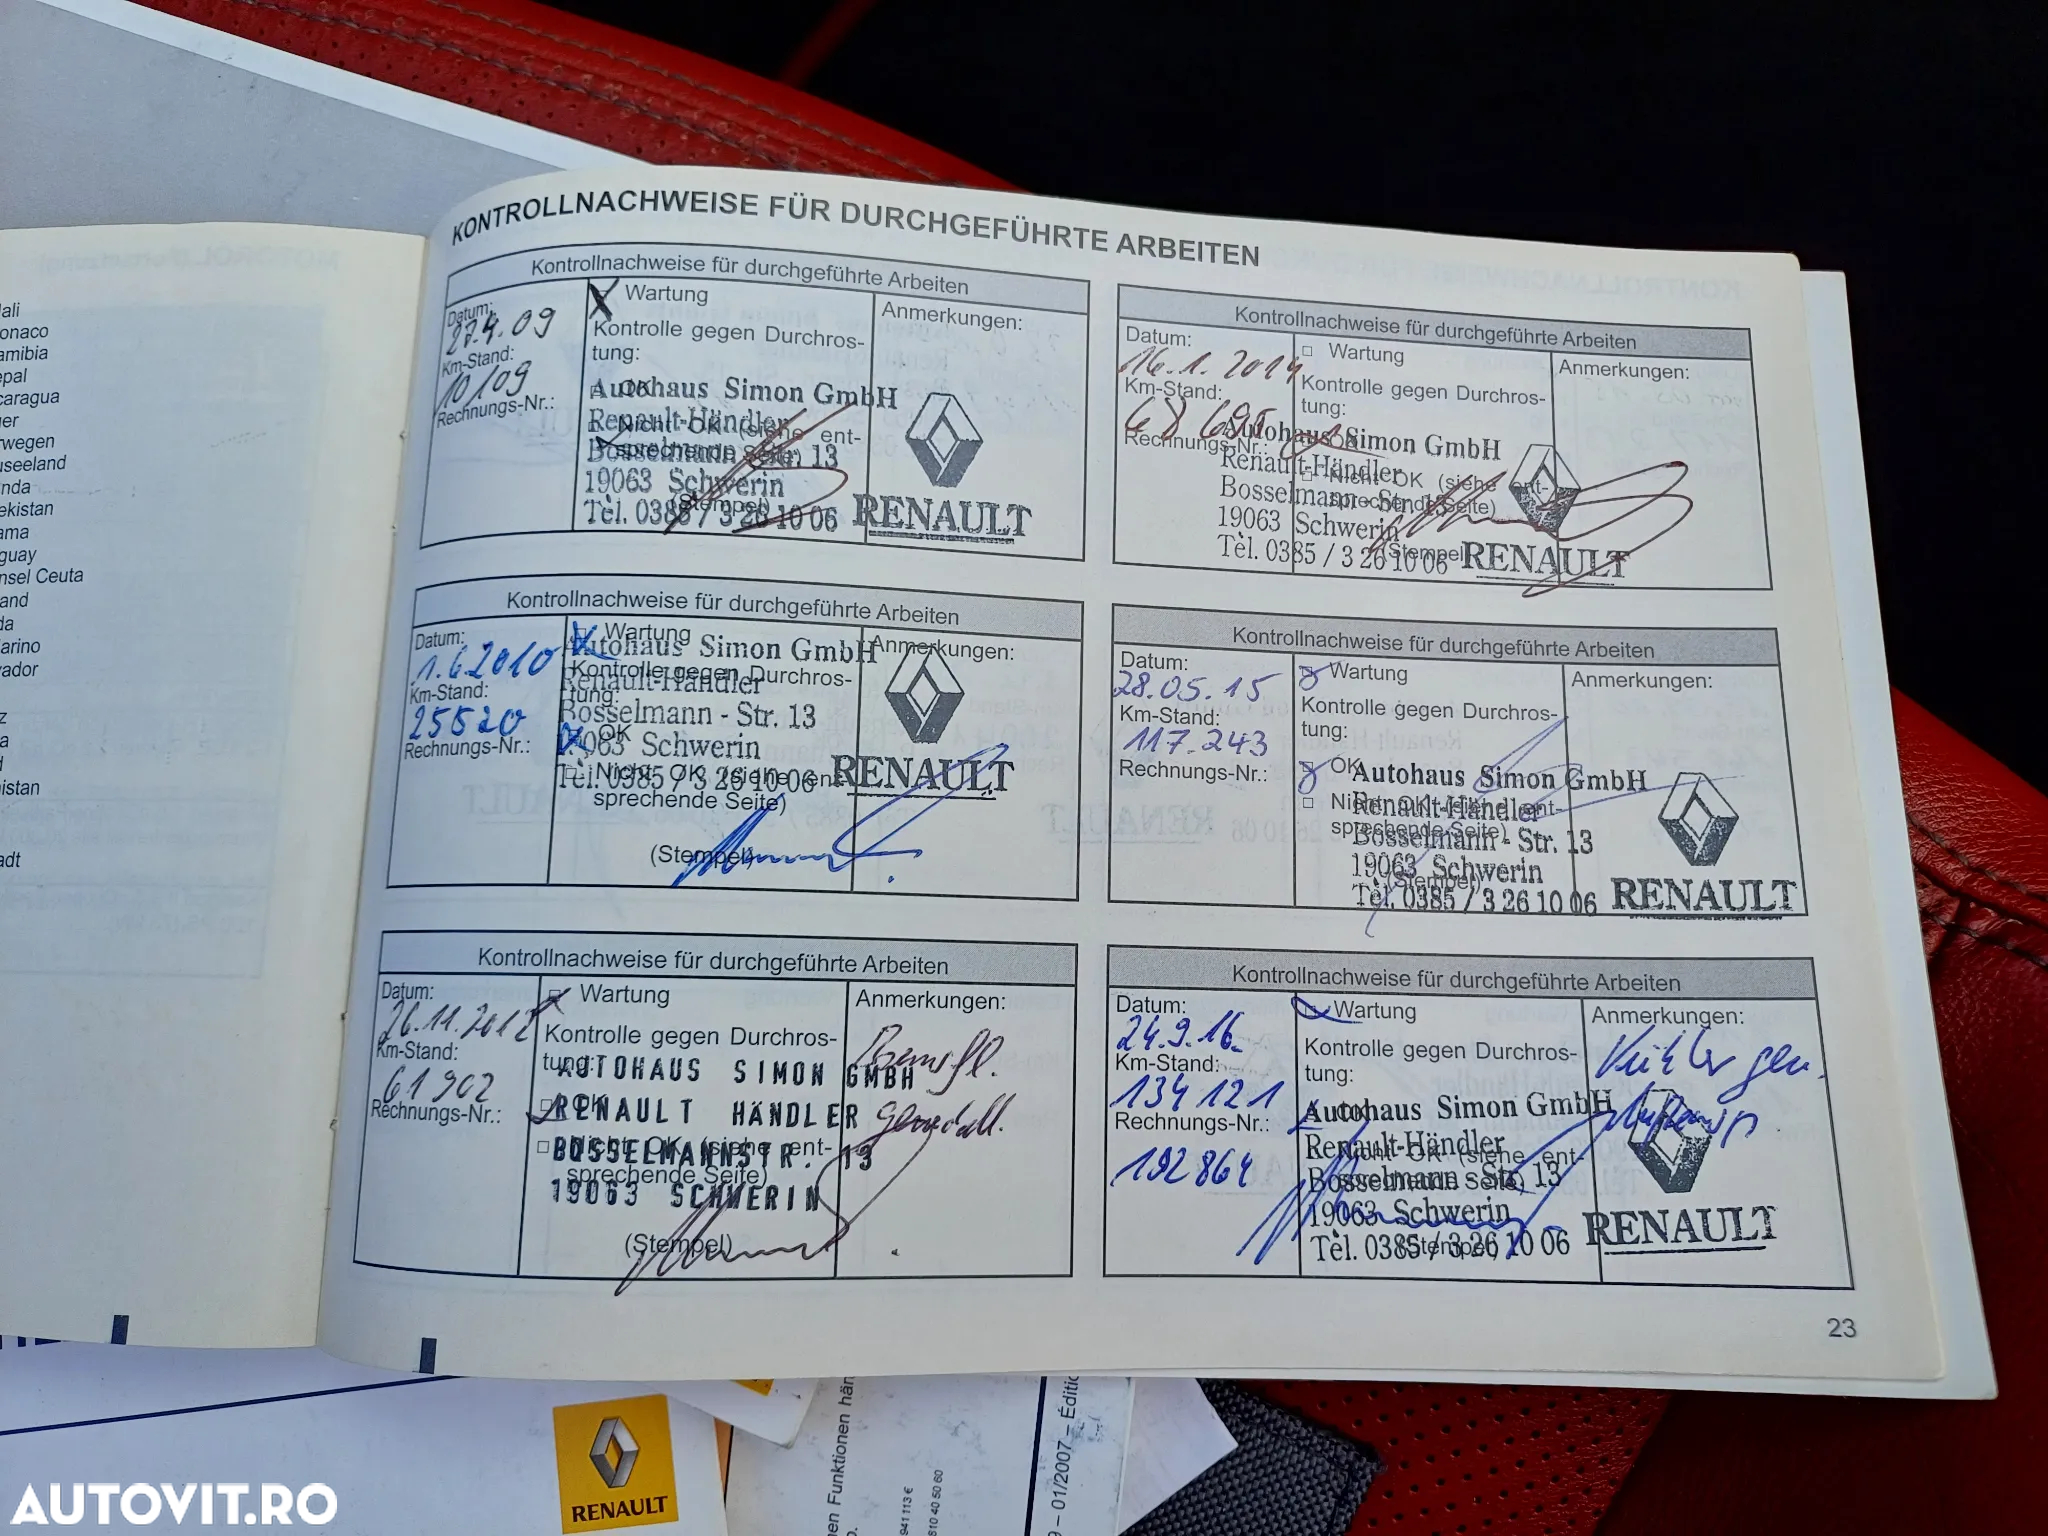 ali
onaco
amibia
epal
caragua
er
rwegen
useeland
nda
ekistan
ama
guay
nsel Ceuta
and
da
arino
vador
z
a
d
nistan
adt
KONTROLLNACHWEISE FÜR DURCHGEFÜHRTE ARBEITEN
Kontrollnachweise für durchgeführte Arbeiten
Datum:
27.4.09
Km-Stand:
10109
Rechnungs-Nr.:
Wartung
Kontrolle gegen Durchros-
tung:
OK
Nicht OK (siehe ent-
sprechende Seite)
(Stempel)
Autohaus Simon GmbH
Renault-Händler
Bosselmann - Str. 13
19063 Schwerin
Tel. 0385 / 3 26 10 06
Anmerkungen:
RENAULT
Kontrollnachweise für durchgeführte Arbeiten
Datum:
1.6.2010
Km-Stand:
25520
Rechnungs-Nr.:
Wartung
Kontrolle gegen Durchros-
tung:
OK
Nicht OK (siehe ent-
sprechende Seite)
(Stempel)
Autohaus Simon GmbH
Renault-Händler
Bosselmann - Str. 13
19063 Schwerin
Tel. 0385 / 3 26 10 06
Anmerkungen:
RENAULT
Kontrollnachweise für durchgeführte Arbeiten
Datum:
26.11.2012
Km-Stand:
61902
Rechnungs-Nr.:
Wartung
Kontrolle gegen Durchros-
tung:
OK
Nicht OK (siehe ent-
sprechende Seite)
(Stempel)
AUTOHAUS SIMON GMBH
RENAULT HÄNDLER
BOSSELMANNSTR. 13
19063 SCHWERIN
Anmerkungen:
Bremsfl.
Kontrollnachweise für durchgeführte Arbeiten
Datum:
16.1.2014
Km-Stand:
Rechnungs-Nr.:
Wartung
Kontrolle gegen Durchros-
tung:
OK
Nicht OK (siehe ent-
sprechende Seite)
(Stempel)
Autohaus Simon GmbH
Renault-Händler
Bosselmann - Str. 13
19063 Schwerin
Tel. 0385 / 3 26 10 06
Anmerkungen:
RENAULT
Kontrollnachweise für durchgeführte Arbeiten
Datum:
28.05.15
Km-Stand:
117.243
Rechnungs-Nr.:
Wartung
Kontrolle gegen Durchros-
tung:
OK
Nicht OK (siehe ent-
sprechende Seite)
(Stempel)
Autohaus Simon GmbH
Renault-Händler
Bosselmann - Str. 13
19063 Schwerin
Tel. 0385 / 3 26 10 06
Anmerkungen:
RENAULT
Kontrollnachweise für durchgeführte Arbeiten
Datum:
24.9.16.
Km-Stand:
134121
Rechnungs-Nr.:
192864
Wartung
Kontrolle gegen Durchros-
tung:
OK
Nicht OK (siehe ent-
sprechende Seite)
(Stempel)
Autohaus Simon GmbH
Renault-Händler
Bosselmann - Str. 13
19063 Schwerin
Tel. 0385 / 3 26 10 06
Anmerkungen:
RENAULT
23
RENAULT
nen Funktionen hän
941 113 €
810 40 50 60
9 – 01/2007 – Éditio
AUTOVIT.RO